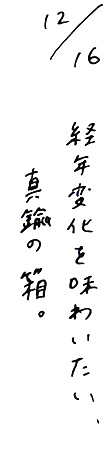 12/16
経年変化を味わいたい、
真鍮の箱。